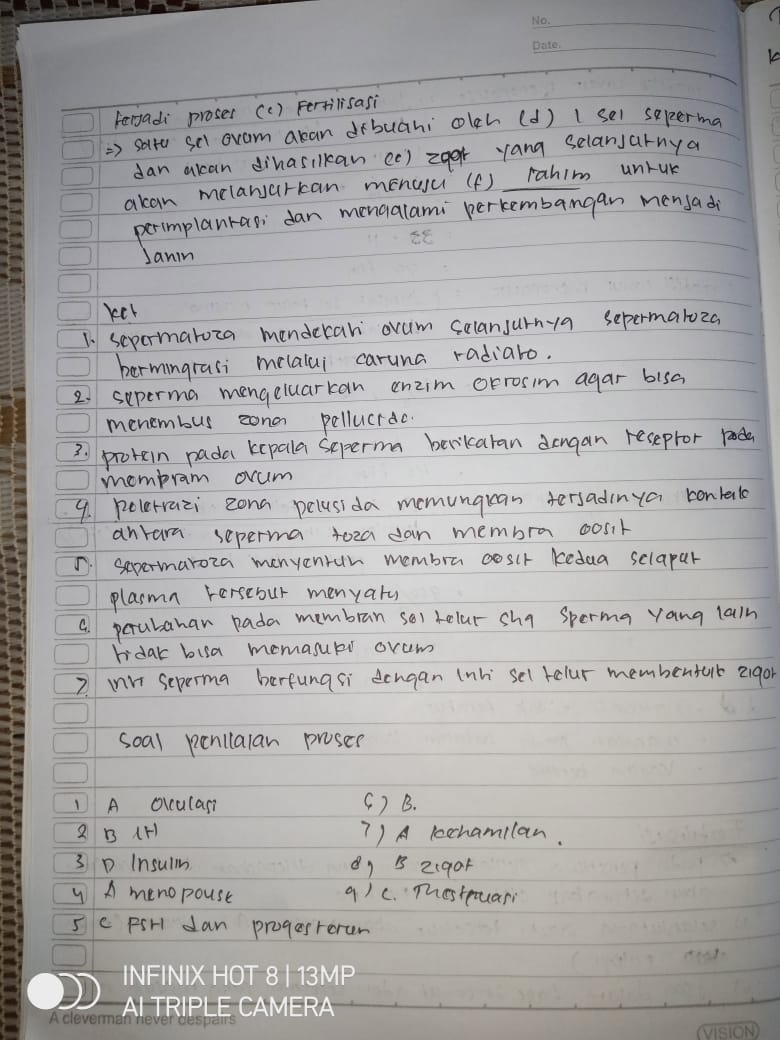 No.
Date.
terjadi proses (c) Fertilisasi
=> satu sel ovum akan dibuahi oleh (d) 1 sel seperma
dan akan dihasilkan (e) zgot yang selanjutnya
akan melanjutkan menuju (f) rahim untuk
perimplantasi dan mengalami perkembangan menjadi
Janin
ket
1. sepermatoza mendekati ovum selanjutnya sepermatoza
bermingrasi melalui caruna radiato.
2. seperma mengeluarkan enzim okrosim agar bisa
menembus zona pellucida.
3. protein pada kepala seperma berikatan dengan receptor pada
mempram ovum
4. peletrazi zona pelusida memungkan terjadinya kontak
antara seperma toza dan membra oosit
5. sepermatoza menyentuh membra oosit kedua selaput
plasma tersebut menyatu
6. perubahan pada membran sel telur shg sperma yang lain
tidak bisa memasuki ovum
7. inti seperma berfungsi dengan inti sel telur membentuk zigot
soal penilaian proses
1 A Ovulasi
2 B LH
3 D Insulin
4 A menopouse
5 C FSH dan progesterun
6) B.
7) A kehamilan.
8) B zigot
9) c.
INFINIX HOT 8 | 13MP
AI TRIPLE CAMERA
A cleverman never despairs
VISION